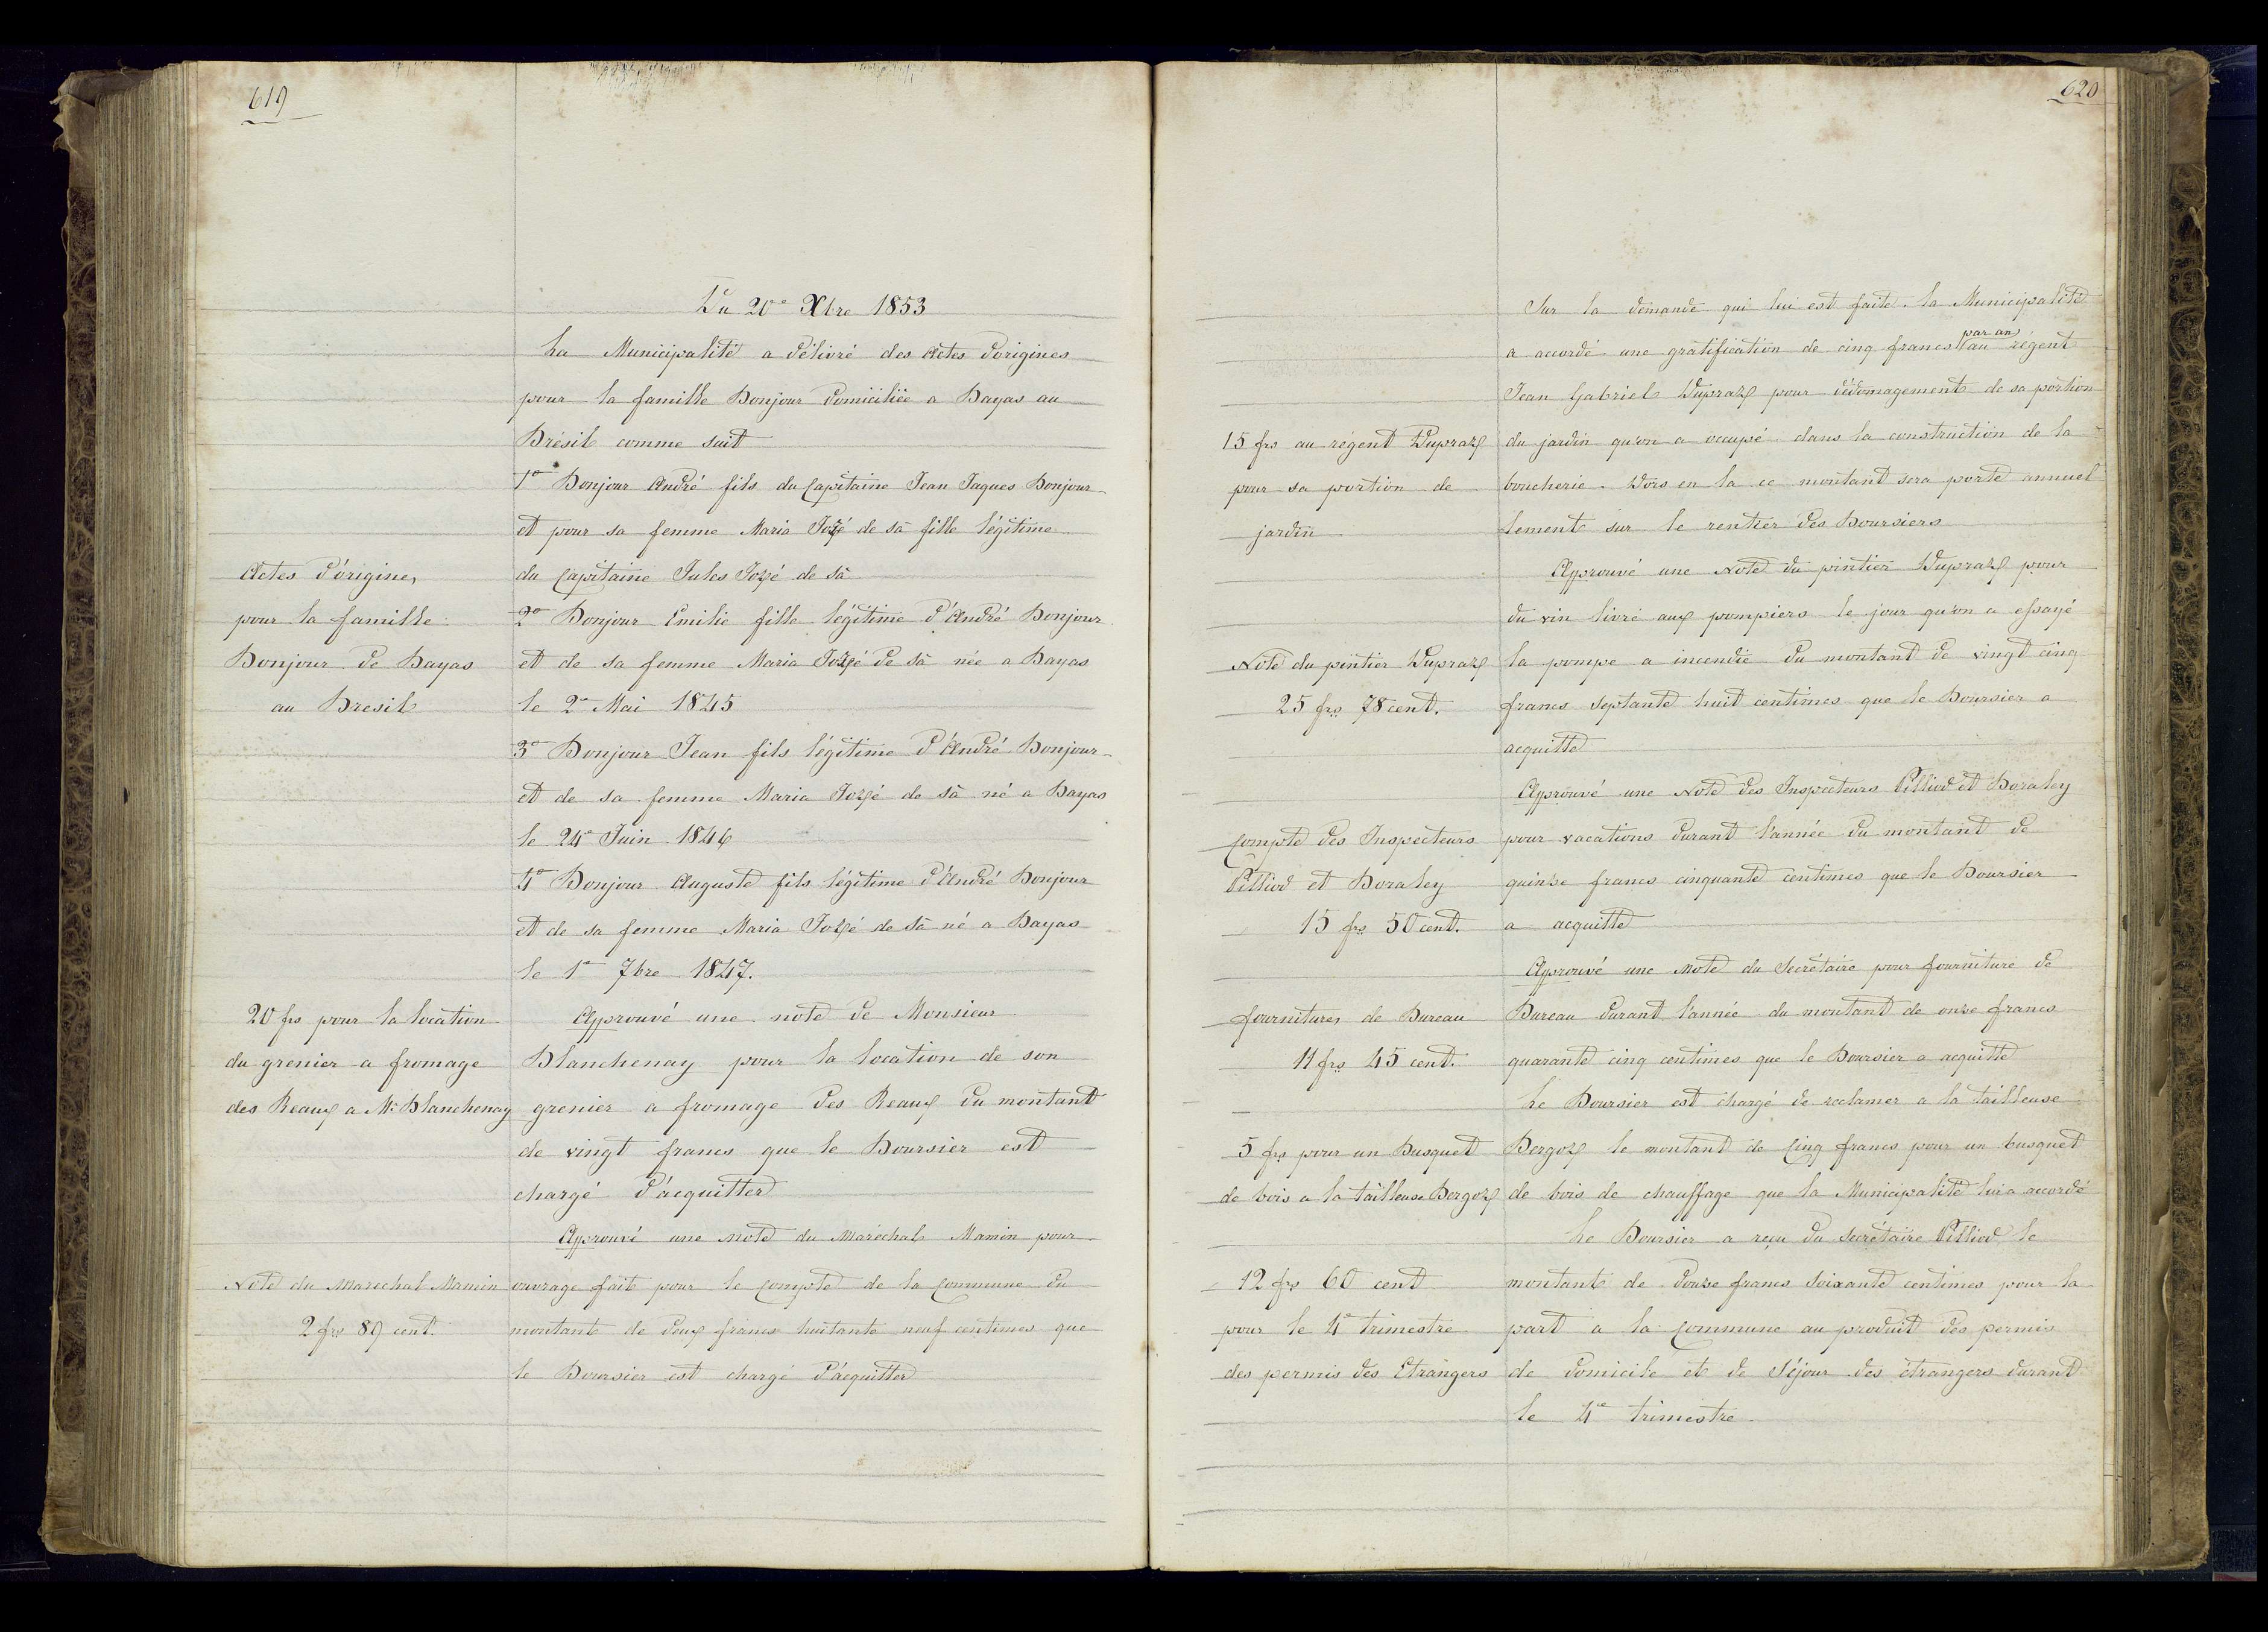 619
Du 20e Xbre 1853
La Municipalité a délivré des Actes d'origines
pour la famille Bonjour domiciliée a Bayas au
Brésil comme suit
1o Bonjour André fils du Capitaine Jean Jaques Bonjour
et pour sa femme Maria Jozé de Sā fille légitime
du Capitaine Jules Jozé de Sā
2o Bonjour Emilie fille légitime d'André Bonjour
et de sa femme Maria Jozé de Sā née a Bayas
le 2e Mai 1845
3o Bonjour Jean fils légitime d'André Bonjour
et de sa femme Maria Jozé de Sā né a Bayas
le 24e Juin 1846
4o Bonjour Auguste fils légitime d'André Bonjour
et de sa femme Maria Jozé de Sā né a Bayas
le 1er 7bre 1847.
Actes d'origines
pour la famille
Bonjour de Bayas
au Bresil
Approuvé une note de Monsieur
Blanchenay pour la location de son
grenier a fromage des Reaux du montant
de vingt francs que le Boursier est
chargé d'acquitter
20 frs pour la location
du grenier a fromage
des Reaux a Mr Blanchenay
Approuvé une Note du Maréchal Mamin pour
ouvrage fait pour le Compte de la Commune du
montant de deux francs huitante neuf centimes que
le Boursier est chargé d'acquitter
Note du Marechal Mamin
2 frs 89 cent.
620
Sur la demande qui lui est faite la Municipalité
a accordé une gratification de cinq francs par an au régent
Jean Gabriel Dupraz pour dédomagement de sa portion
du jardin qu'on a occupé dans la construction de la
boucherie. Dors en la ce montant sera porté annuel
lement sur le rentier des Boursiers
15 frs au régent Dupraz
pour sa portion de
jardin
Approuvé une Note du pintier Dupraz pour
du vin livré aux pompiers le jour qu'on a essayé
la pompe a incendie du montant de vingt cinq
francs septante huit centimes que le Boursier a
acquitté
Note du pintier Dupraz
25 frs 78 cent.
Approuvé une Note des Inspecteurs Pilliod et Boraley
pour vacations durant l'année du montant de
quinze francs cinquante centimes que le Boursier
a acquitté
Compte des Inspecteurs
Pilliod et Boraley
15 frs 50 cent.
Approuvé une Note du Secrétaire pour fourniture de
Bureau durant l'année du montant de onze francs
quarante cinq centimes que le Boursier a acquitté
fournitures de Bureau
11 frs 45 cent.
Le Boursier est chargé de reclamer a la tailleuse
Bergoz le montant de Cinq francs pour un busquet
de bois de chauffage que la Municipalité lui a accordé
5 frs pour un Busquet
de bois a la tailleuse Bergoz
Le Boursier a reçu du Secrétaire Pilliod le
montant de douze francs soixante centimes pour la
part a la Commune au produit des permis
de domicile et de Séjour des étrangers durant
le 4e trimestre
12 frs 60 cent
pour le 4e trimestre
des permis des Etrangers